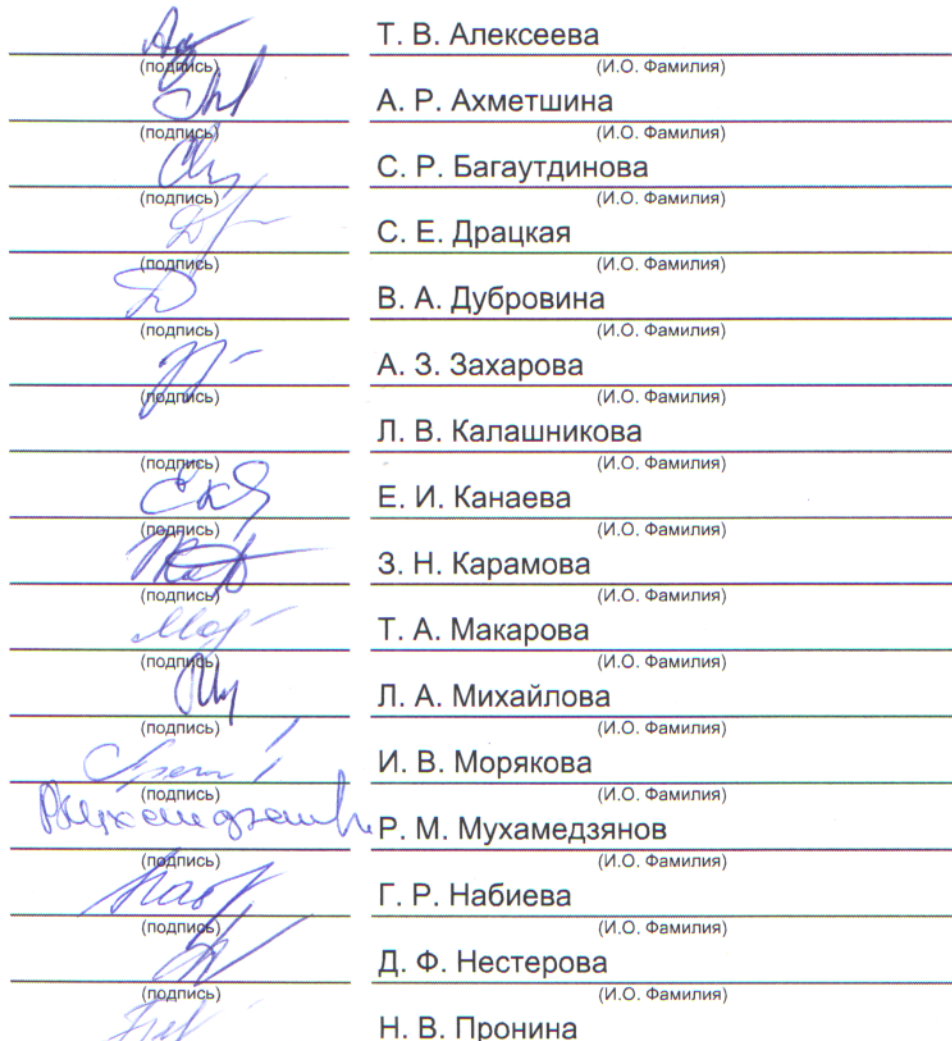 Т. В. Алексеева
(подпись) (И.О. Фамилия)
А. Р. Ахметшина
(подпись) (И.О. Фамилия)
С. Р. Багаутдинова
(подпись) (И.О. Фамилия)
С. Е. Драцкая
(подпись) (И.О. Фамилия)
В. А. Дубровина
(подпись) (И.О. Фамилия)
А. З. Захарова
(подпись) (И.О. Фамилия)
Л. В. Калашникова
(подпись) (И.О. Фамилия)
Е. И. Канаева
(подпись) (И.О. Фамилия)
З. Н. Карамова
(подпись) (И.О. Фамилия)
Т. А. Макарова
(подпись) (И.О. Фамилия)
Л. А. Михайлова
(подпись) (И.О. Фамилия)
И. В. Морякова
(подпись) (И.О. Фамилия)
Р. М. Мухамедзянов
(подпись) (И.О. Фамилия)
Г. Р. Набиева
(подпись) (И.О. Фамилия)
Д. Ф. Нестерова
(подпись) (И.О. Фамилия)
Н. В. Пронина